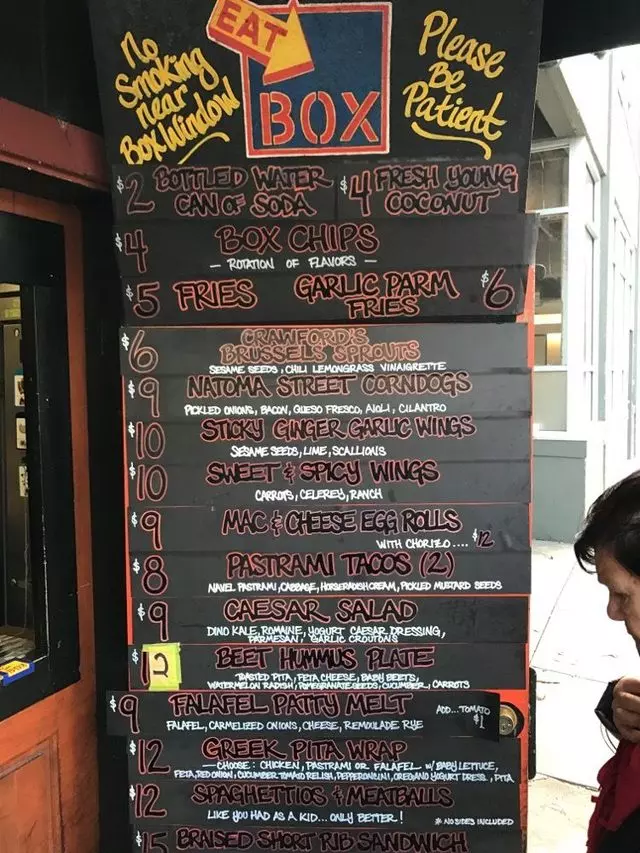 EAT
BOX
No
Smoking
near
Box Window
Please
Be
Patient
$2 BOTTLED WATER
CAN OF SODA
$4 FRESH YOUNG
COCONUT
$4 BOX CHIPS
— ROTATION OF FLAVORS —
$5 FRIES
GARLIC PARM
FRIES $6
$6 CRAWFORD'S
BRUSSELS SPROUTS
SESAME SEEDS, CHILI LEMONGRASS VINAIGRETTE
$9 NATOMA STREET CORNDOGS
PICKLED ONIONS, BACON, QUESO FRESCO, AIOLI, CILANTRO
$10 STICKY GINGER GARLIC WINGS
SESAME SEEDS, LIME, SCALLIONS
$10 SWEET & SPICY WINGS
CARROTS, CELEREY, RANCH
$9 MAC & CHEESE EGG ROLLS
WITH CHORIZO.... $12
$8 PASTRAMI TACOS (2)
NAVEL PASTRAMI, CABBAGE, HORSERADISH CREAM, PICKLED MUSTARD SEEDS
$9 CAESAR SALAD
DINO KALE, ROMAINE, YOGURT CAESAR DRESSING,
PARMESAN, GARLIC CROUTONS
$12 BEET HUMMUS PLATE
TOASTED PITA, FETA CHEESE, BABY BEETS,
WATERMELON RADISH, POMEGRANATE SEEDS, CUCUMBER, CARROTS
$9 FALAFEL PATTY MELT
ADD...TOMATO
$1
FALAFEL, CARMELIZED ONIONS, CHEESE, REMOULADE RYE
$12 GREEK PITA WRAP
— CHOOSE: CHICKEN, PASTRAMI OR FALAFEL w/ BABY LETTUCE,
FETA, RED ONION, CUCUMBER TOMATO RELISH, PEPPERONCINI, OREGANO YOGURT DRESS., PITA
$12 SPAGHETTIOS & MEATBALLS
LIKE YOU HAD AS A KID... ONLY BETTER!
* NO SIDES INCLUDED
$15 BRAISED SHORT RIB SANDWICH
BOX